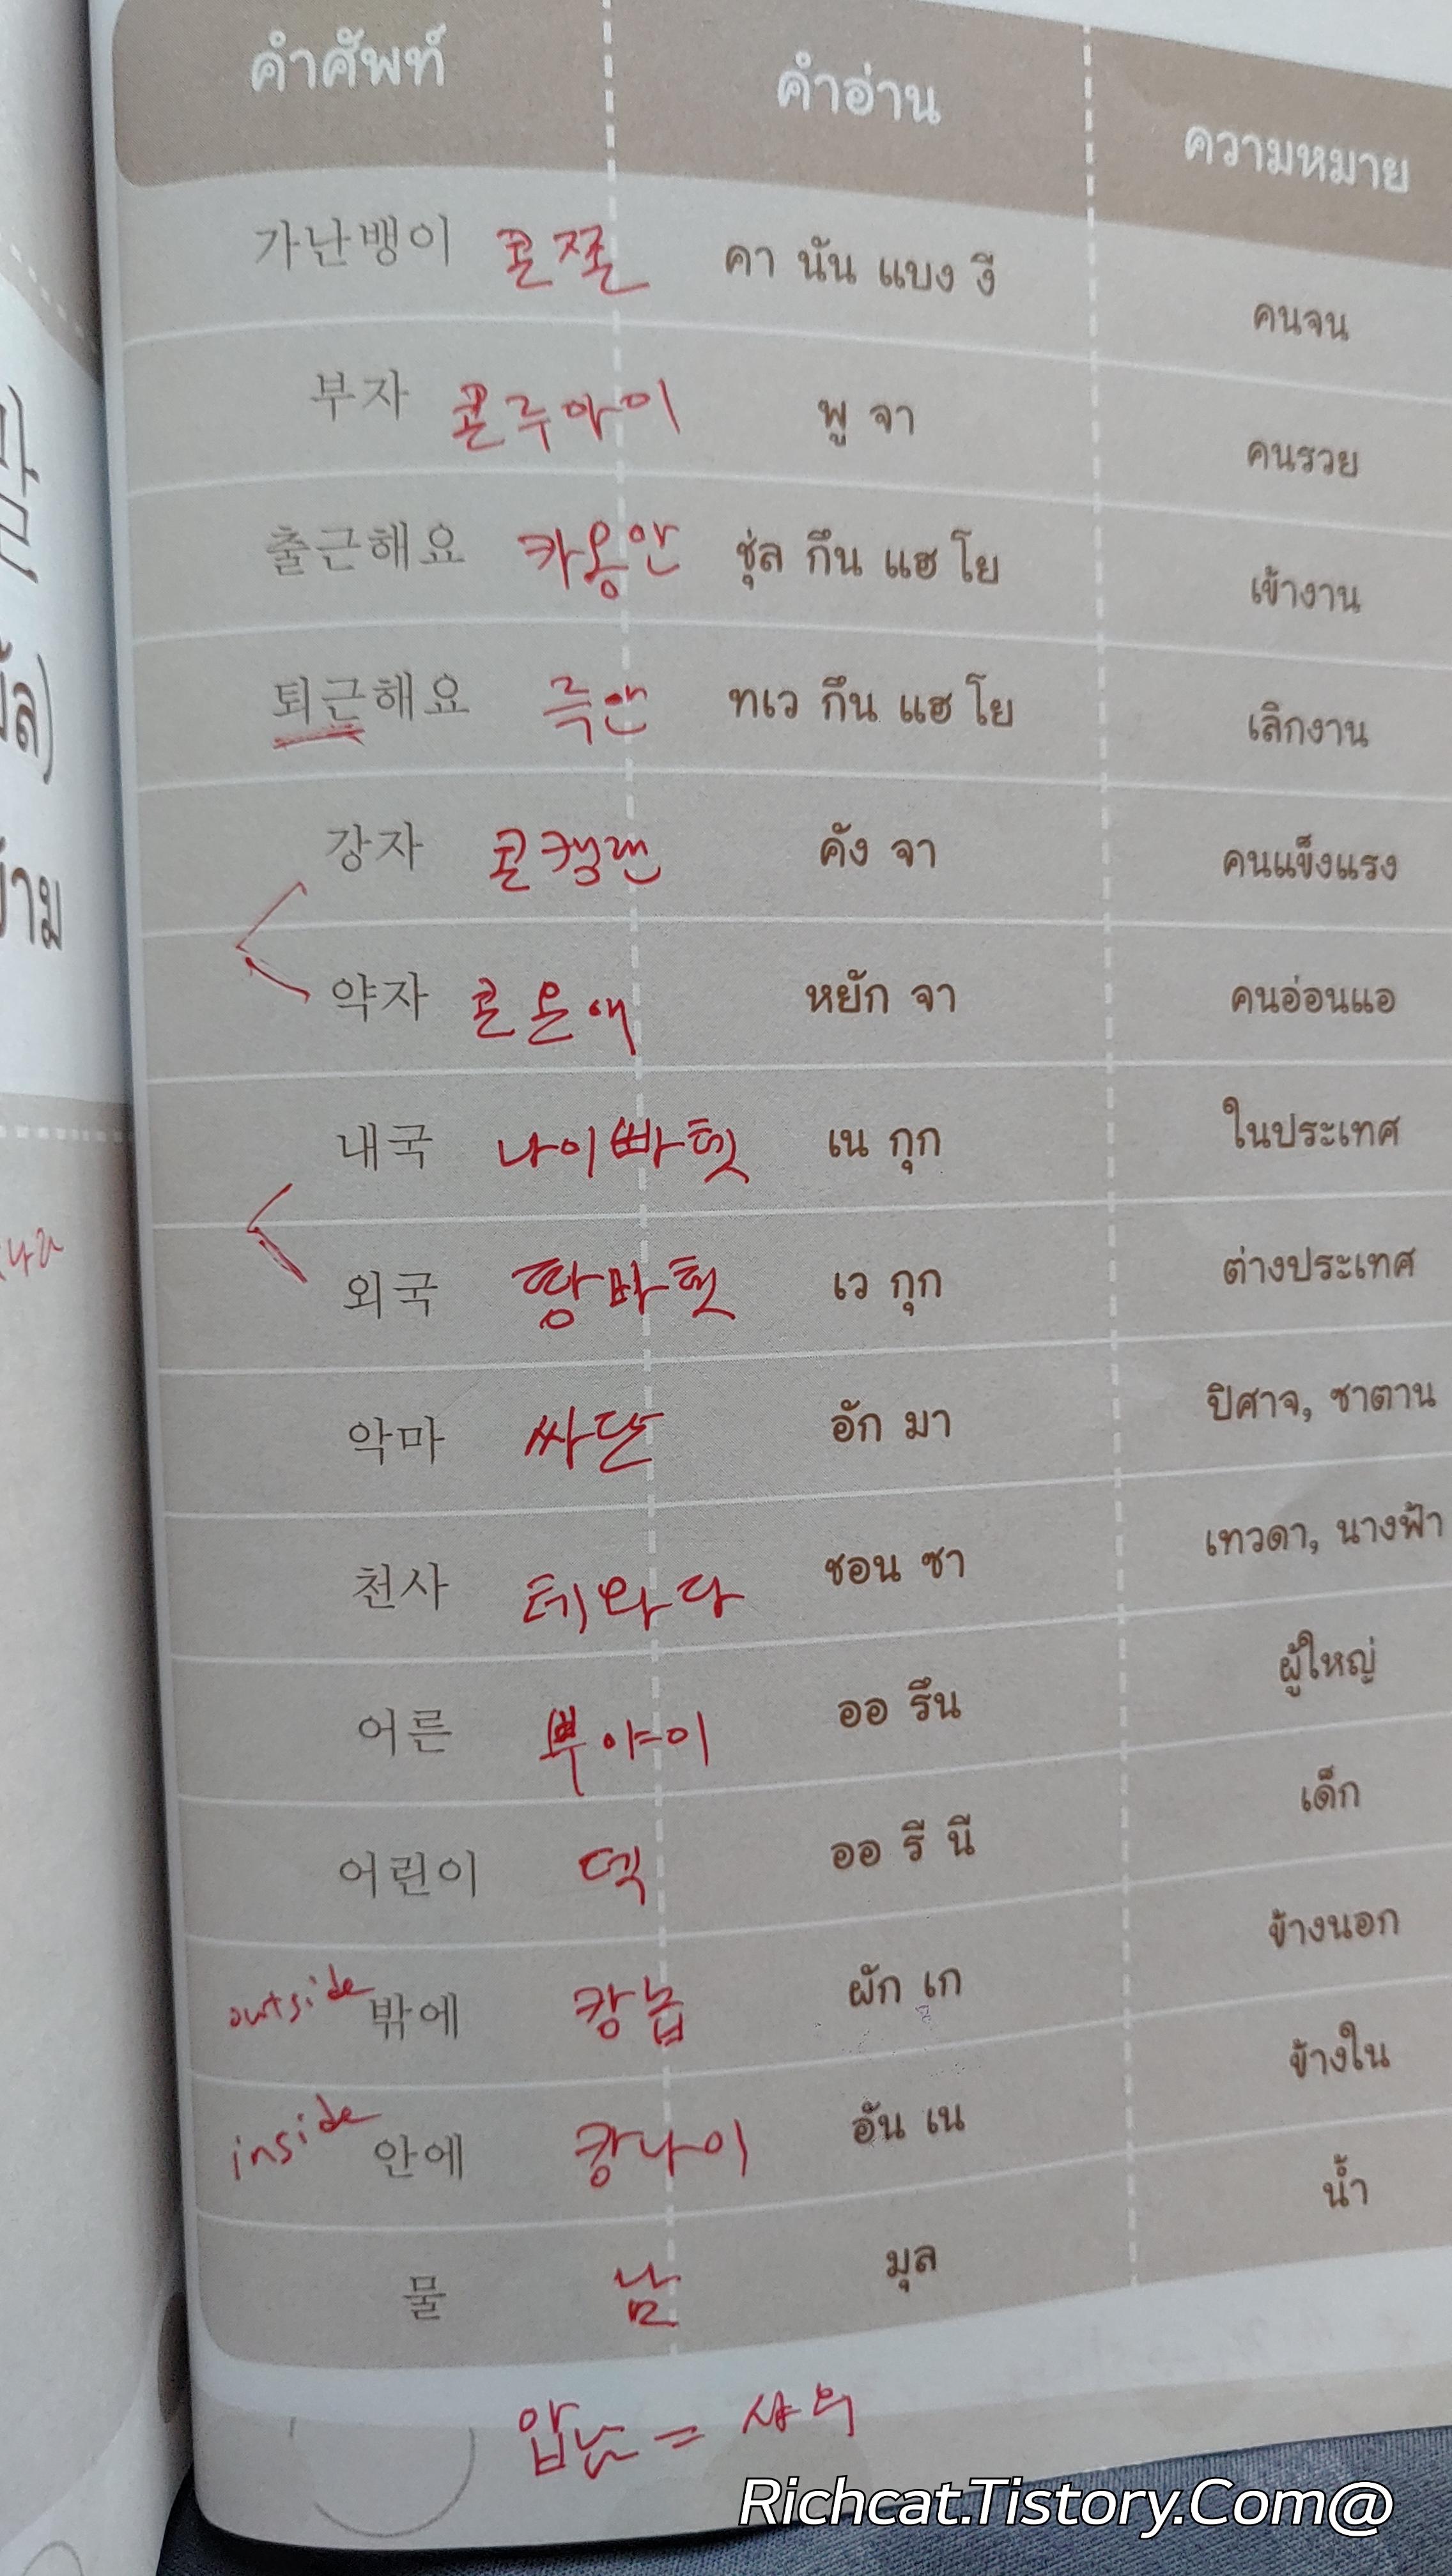 คำศัพท์ คำอ่าน ความหมาย
가난뱅이 콘쫀 คา นัน แบง งี คนจน
부자 콘루아이 พู จา คนรวย
출근해요 카옹안 ชุ่ล กึน แฮ โย เข้างาน
퇴근해요 륵안 ทเว กึน แฮ โย เลิกงาน
강자 콘캥랜 คัง จา คนแข็งแรง
약자 콘온애 หยัก จา คนอ่อนแอ
내국 나이빠텟 เน กุก ในประเทศ
외국 땅빠텟 เว กุก ต่างประเทศ
악마 싸단 อัก มา ปิศาจ, ซาตาน
천사 테와다 ชอน ซา เทวดา, นางฟ้า
어른 뿌야이 ออ รึน ผู้ใหญ่
어린이 덱 ออ รี นี เด็ก
outside 밖에 캉녹 ผัก เก ข้างนอก
inside 안에 캉나이 อัน เน ข้างใน
물 남 มุล น้ำ
압남 = 샤워
Richcat.Tistory.Com@